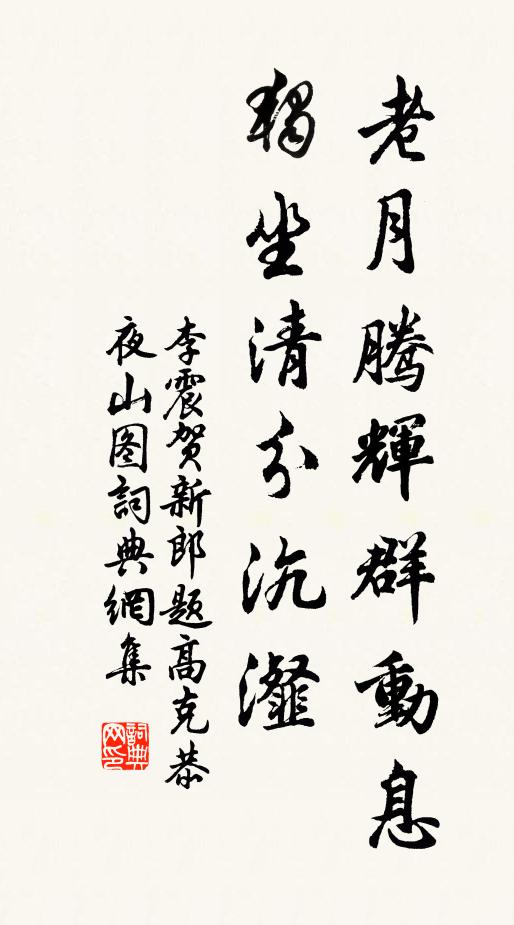 老月腾輝群動息
獨坐清分沆瀣
李震賀新郎題高克恭
夜山图詞典網集
詞典
网印